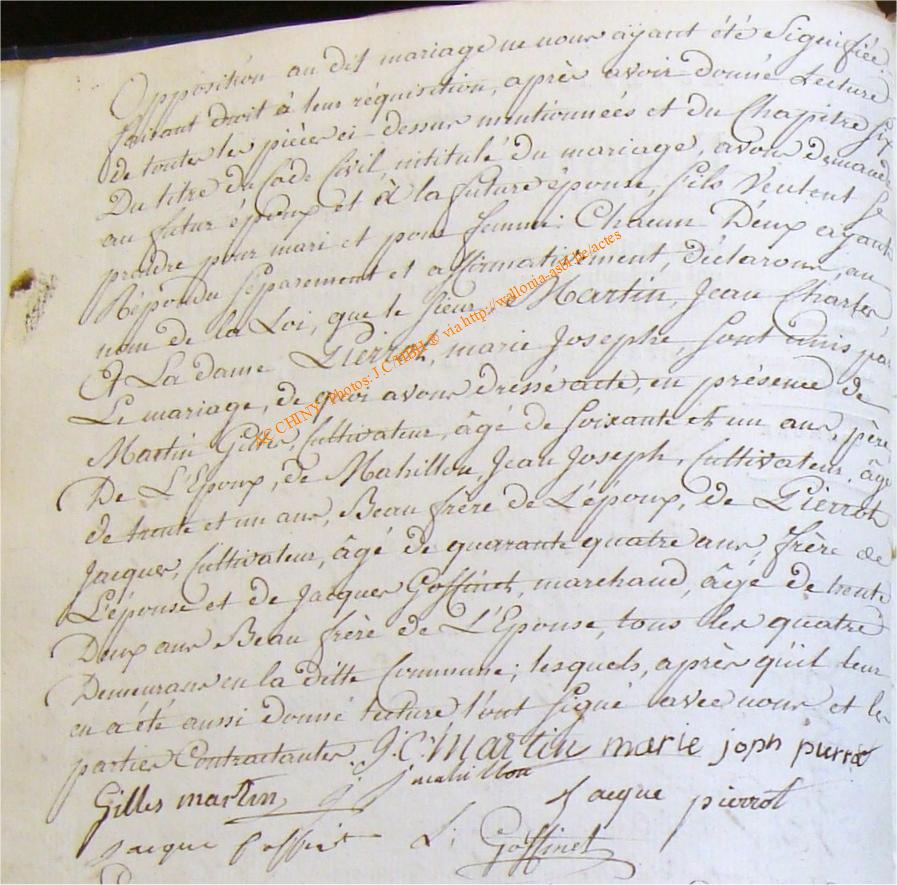 Opposition au dit mariage ne nous ayant été Signifiée.
faisant droit à leur réquisition, après avoir donné Lecture
de toutes les pièces ci-dessus mentionnées et du Chapitre Six
Du titre du Code Civil, intitulé du mariage, avons demandé
au futur époux et à la future épouse, s'ils veulent se
prendre pour mari et pour femme; Chacun D'eux ayant
Répondu Séparement et affirmativement, Déclarons, au
nom de la Loi, que le Sieur Martin, Jean Charles
Et La dame Pierrot, marie Josephe Sont unis par
Le mariage, de quoi avons dressé acte, en présence de
Martin Gilles, Cultivateur, âgé de Soixante et un ans, père
De L'Epoux, de Mahillon, Jean Joseph, Cultivateur, âgé
de trente et un ans, Beau frère de L'époux, de Pierrot
Jacques, Cultivateur, âgé de quarante quatre ans, frère de
L'épouse et de Jacques Goffinet, marchand, âgé de trente
Deux ans Beau frère de L'Epouse, tous les quatre
Demeurans en la ditte Commune; lesquels, après qu'il leur
en a été aussi donné lecture l'ont Signé avec nous et les
parties Contractantes. J. C. Martin marie joph pierrot
Gilles martin j j mahillon jacque pierrot
jacque Goffinet L. Goffinet
JC CHINY Photos: J.C. via http://wallonia-asbl.be/actes